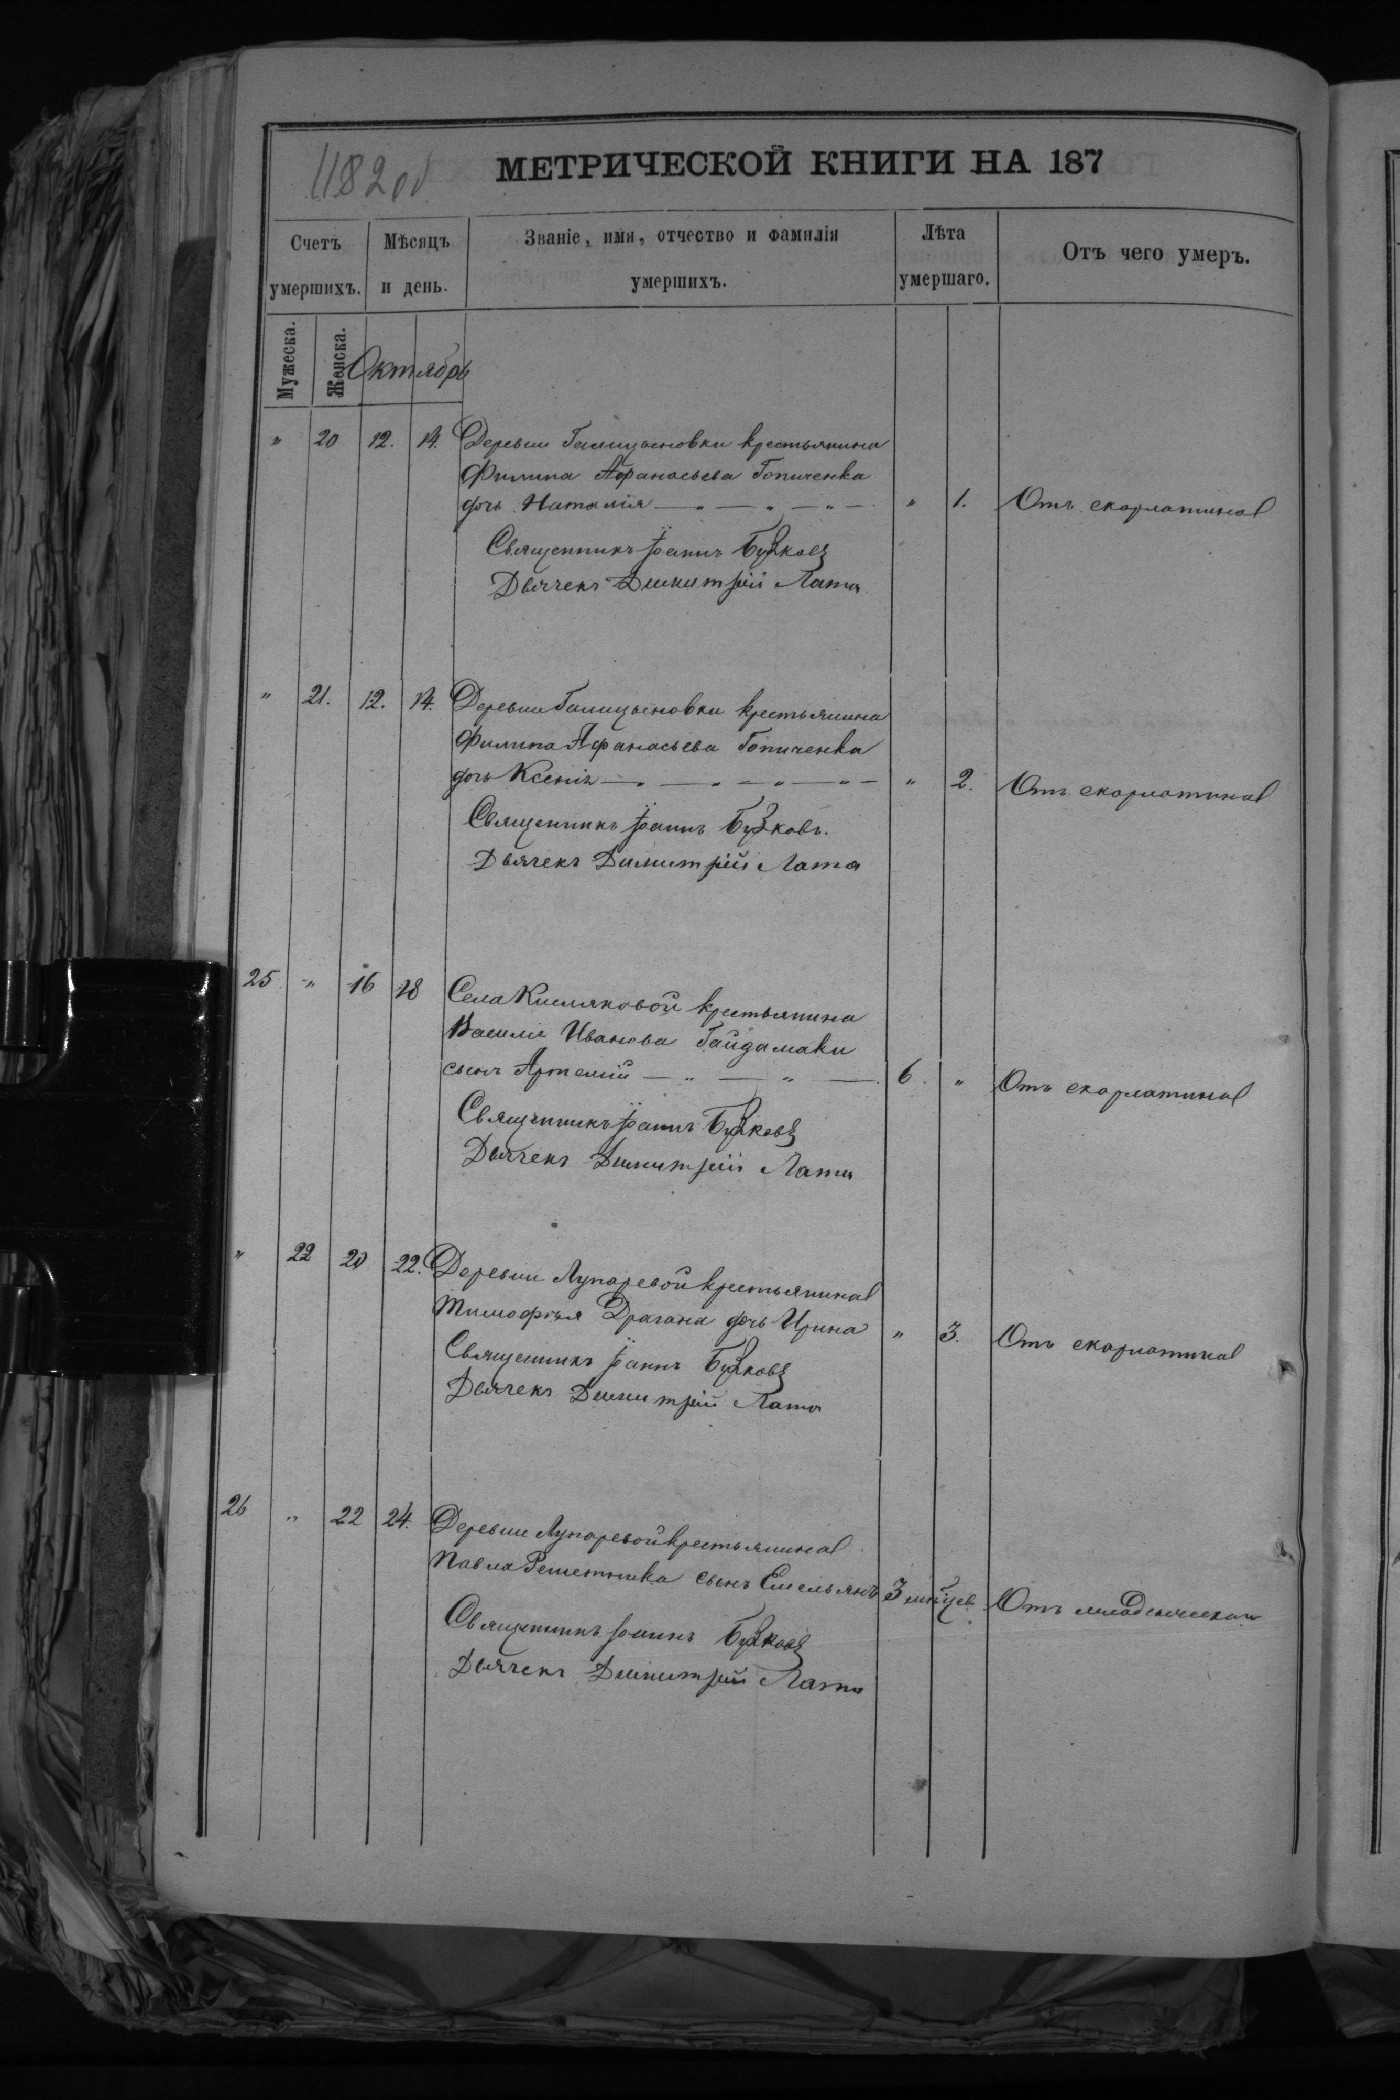 1182 об
МЕТРИЧЕСКОЙ КНИГИ НА 187
Счетъ умершихъ.
Мѣсяцъ и день.
Званіе, имя, отчество и фамилія умершихъ.
Лѣта умершаго.
Отъ чего умеръ.
Мужеска.
Женска.
Октябрь
" 20 12. 14. Деревни Галицыновки крестьянина
Филипа Афанасьева Гопиченка
дочь Наталія — " — " — " — " 1. Отъ скарлатины
Священникъ Іоаннъ
Дьячекъ Димитрій Лата
" 21. 12. 14. Деревни Галицыновки крестьянина
Филипа Афанасьева Гопиченка
дочь Ксенія — " — " — " — " — " 2. Отъ скарлатины
Священникъ Іоаннъ
Дьячекъ Димитрій Лата
25 " 16 18 Села Кисляковой крестьянина
Василія Иванова Гайдамаки
сынъ Артемій — " — " — 6. " Отъ скарлатины
Священникъ Іоаннъ
Дьячекъ Димитрій Лата
" 22 20 22. Деревни Лупаревой крестьянина
Тимофѣя Драгана дочь Ирина " 3. Отъ скарлатины
Священникъ Іоаннъ
Дьячекъ Димитрій Лата
26 " 22 24. Деревни Лупаревой крестьянина
Павла Решетника сынъ Емельянъ 3 мѣсцев. Отъ младенческой
Священникъ Іоаннъ
Дьячекъ Димитрій Лата